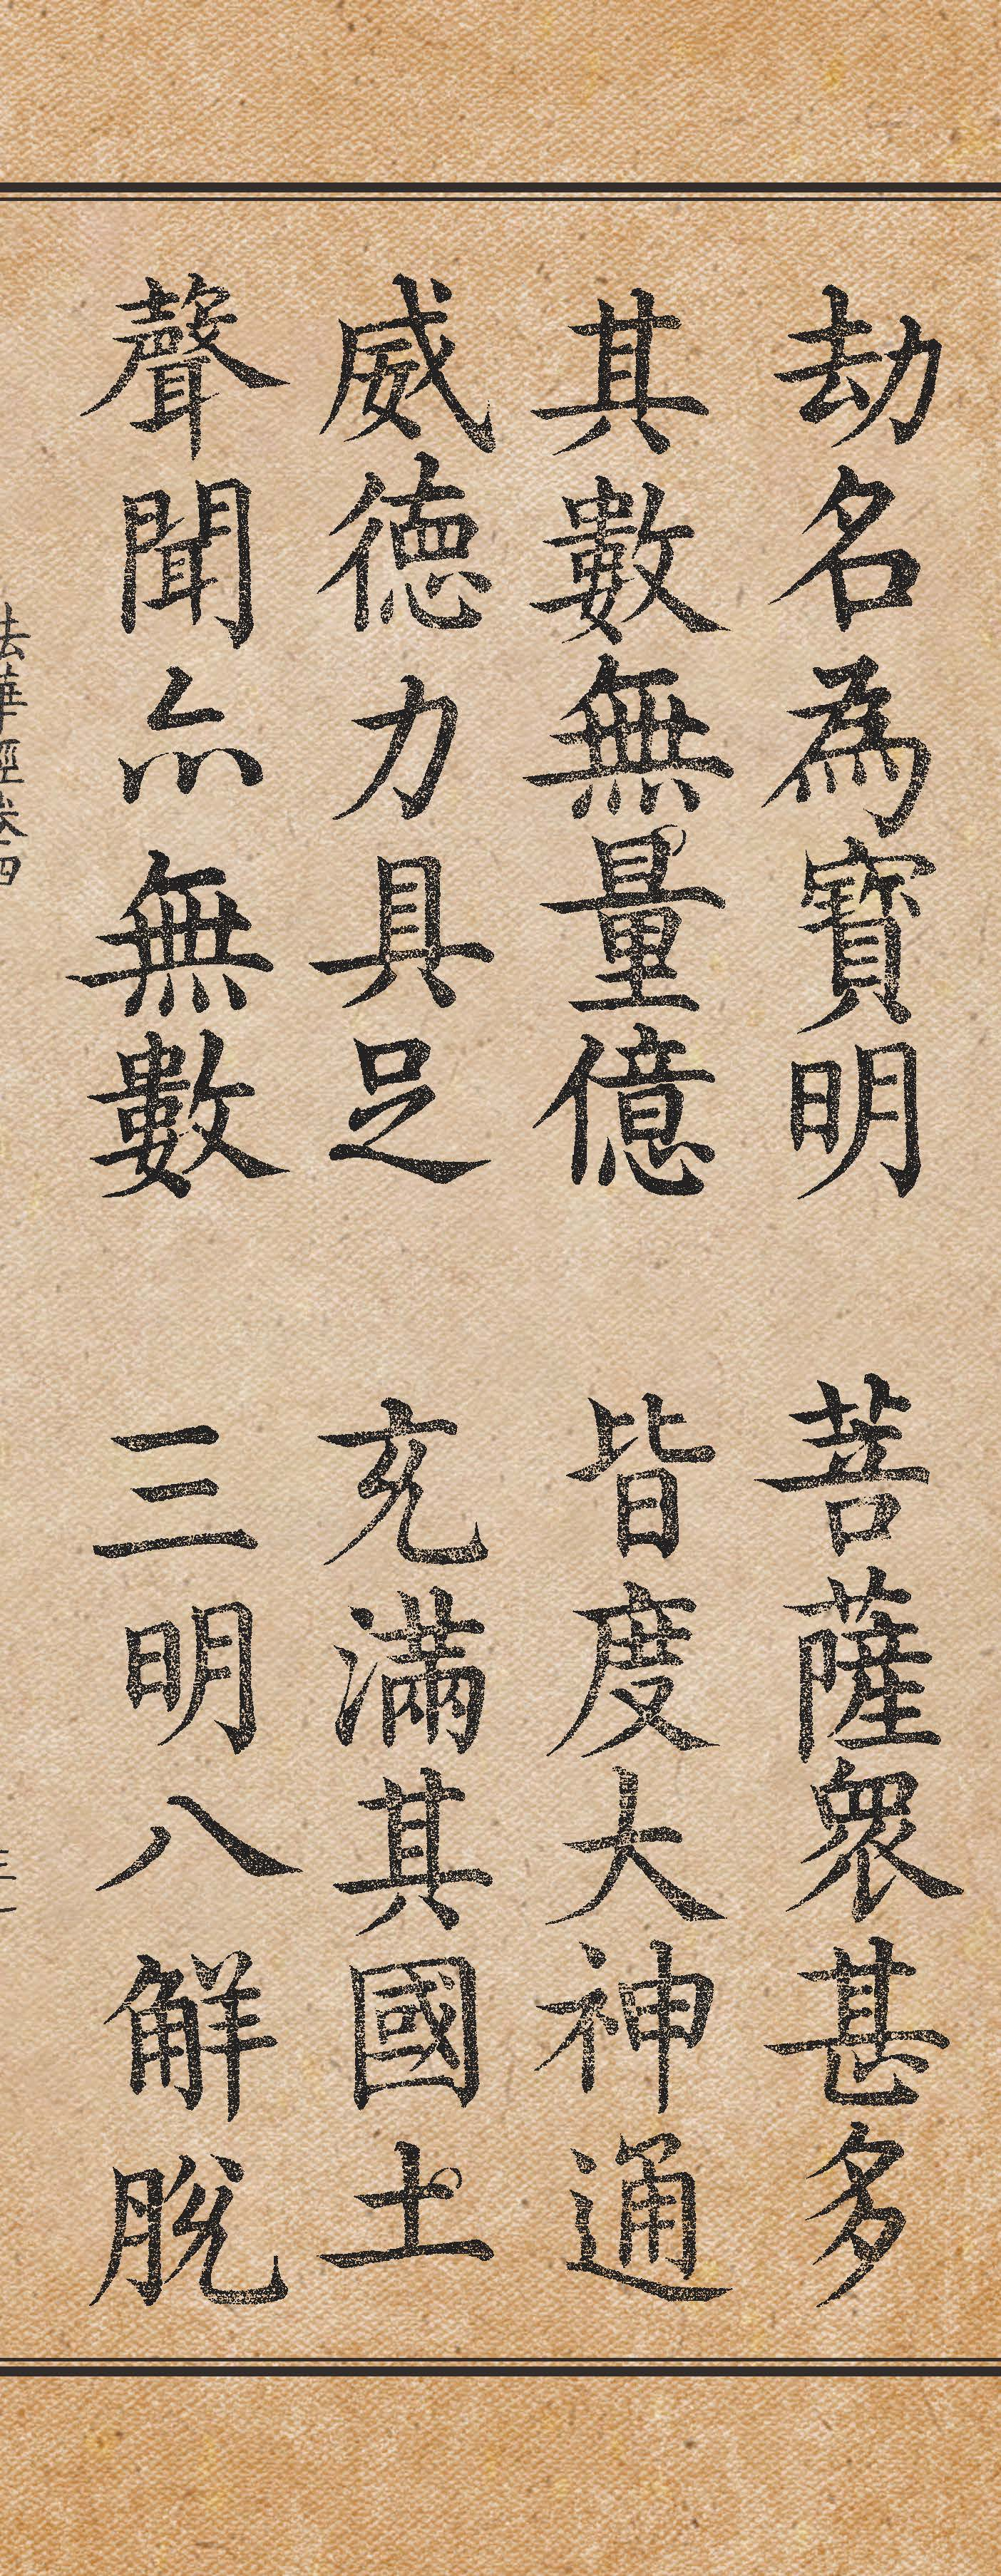 劫名為寶明　菩薩衆甚多
其數無量億　皆度大神通
威德力具足　充滿其國土
聲聞亦無數　三明八解脫
法華經卷四